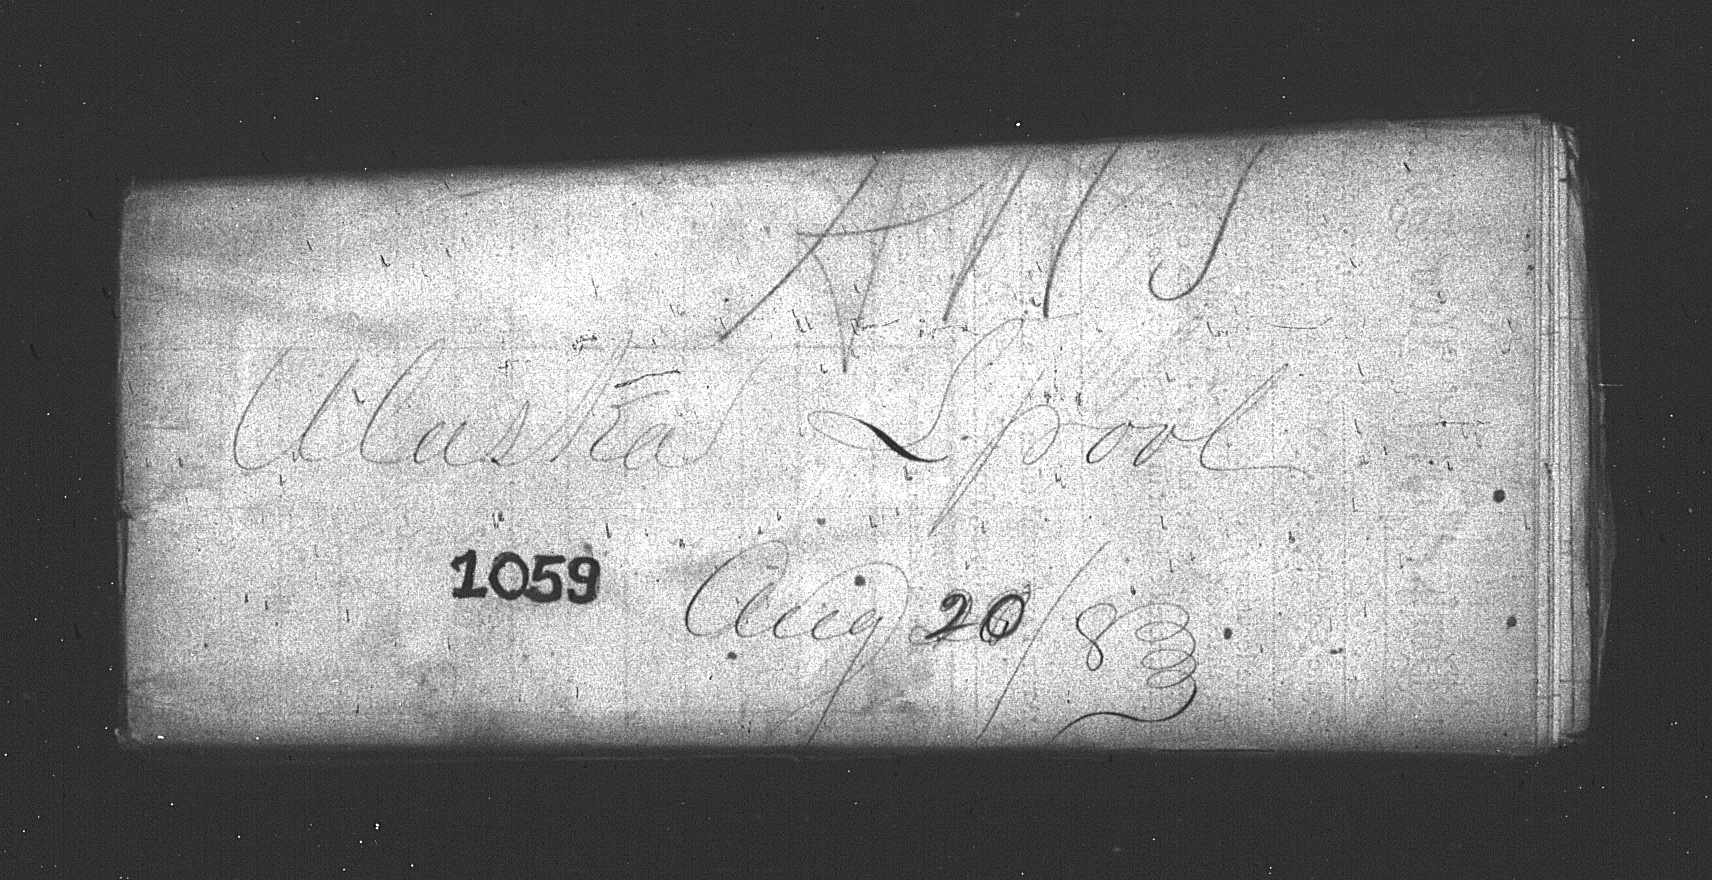 Alaska Spool
1059 Aug 20/83